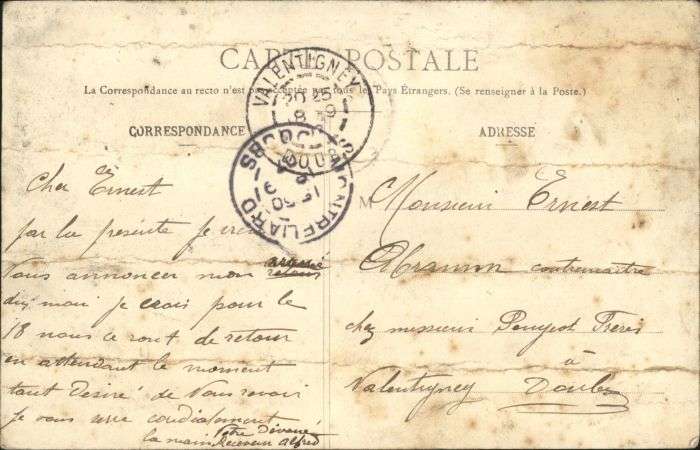 CARTE POSTALE
La Correspondance au recto n'est pas acceptée par tous les Pays Étrangers. (Se renseigner à la Poste.)
CORRESPONDANCE
ADRESSE
VALENTIGNEY
DOUBS
MONTBELIARD
DOUBS
Cher Ernest
par la présente je
Vous annoncer mon arrivé
retour
mai je crois pour le
18 nous seront de retour
en attendant le moment
tant Desiré de Vous revoir
je vous serre cordialement
la main Votre Dévoué
Receveur Alfred
M Monsieur Ernest
Abramm contremaître
chez messieurs Peugeot Frères
à
Valentigney Doubs